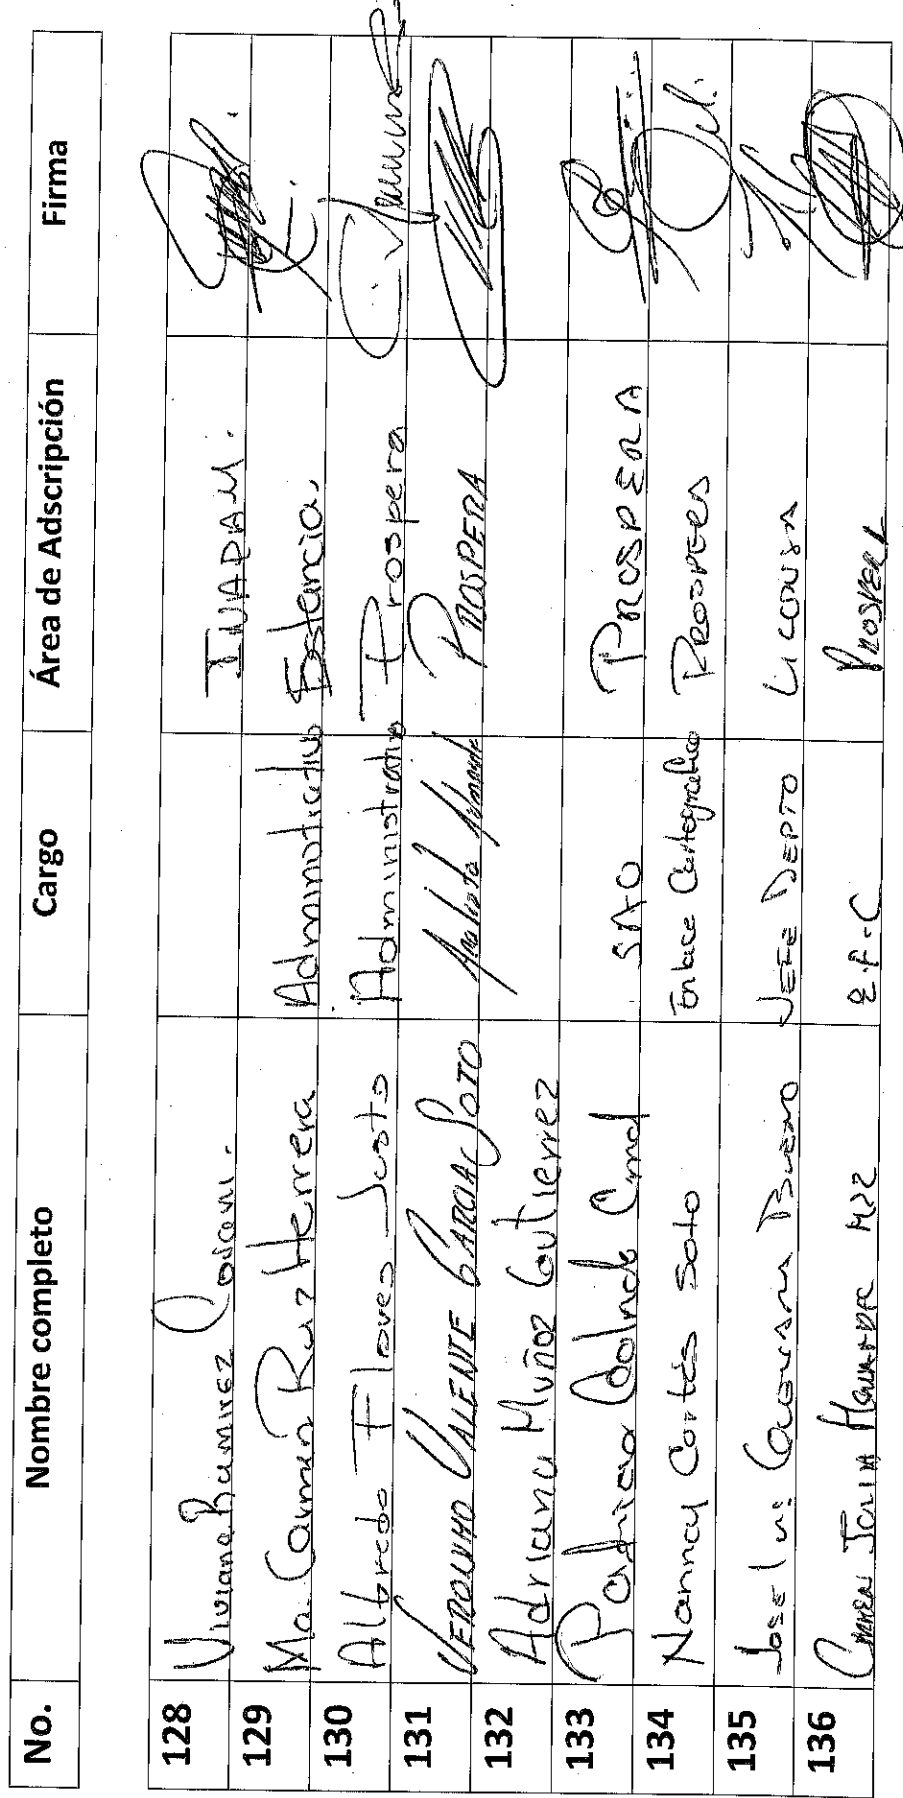 No. Nombre completo Cargo Área de Adscripción Firma
128 Viviana Ramirez INAPAM.
129 Ma. Carmen Ruiz Herrera Administrativo Estancia.
130 Alfredo Flores Justo Administrativo Prospera
131 VALENTE GARCIA SOTO Analista PROSPERA
132 Adriana Muñoz Gutierrez
133 Patricia SAO PROSPERA
134 Nancy Cortés Soto Enlace Cartografico PROSPERA
135 Jose Luis JEFE DEPTO LICONSA
136 PROSPERA